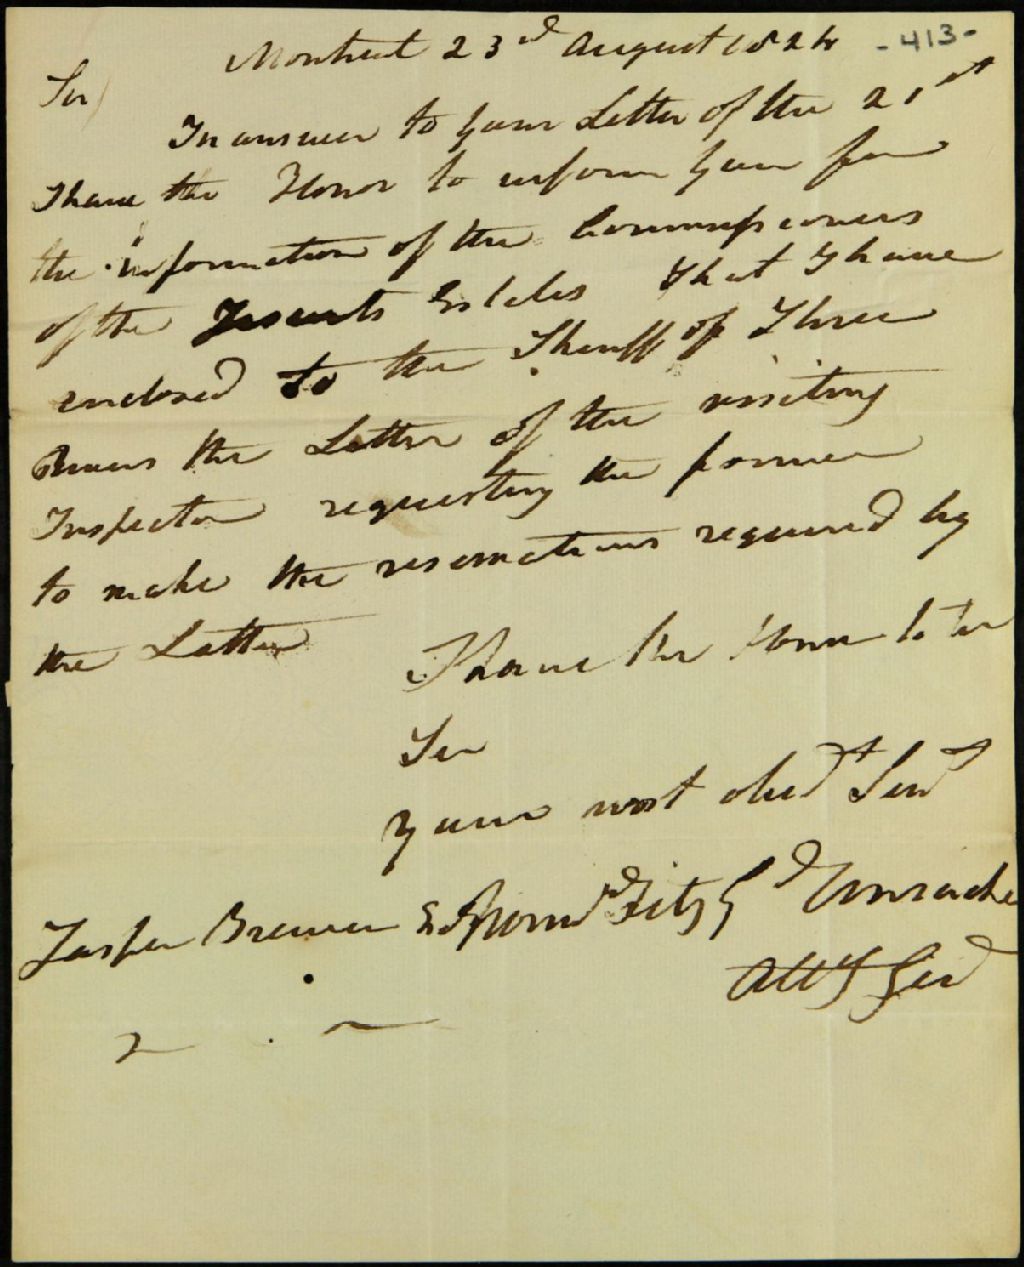 Montreal 23d August 1824
-413-
Sir
In answer to your Letter of the 21st
I have the Honor to inform you for
the information of the Commissioners
of the Jesuits Estates that I have
enclosed to the Sheriff of Three
Rivers the Letter of the visiting
Inspector requesting the former
to make the reservations required by
the Letter
I have the Honor to be
Sir
Your most obed t Servt
Jasper Brewer Esq Norm d Fitz G d Uniacke
Atty Genl